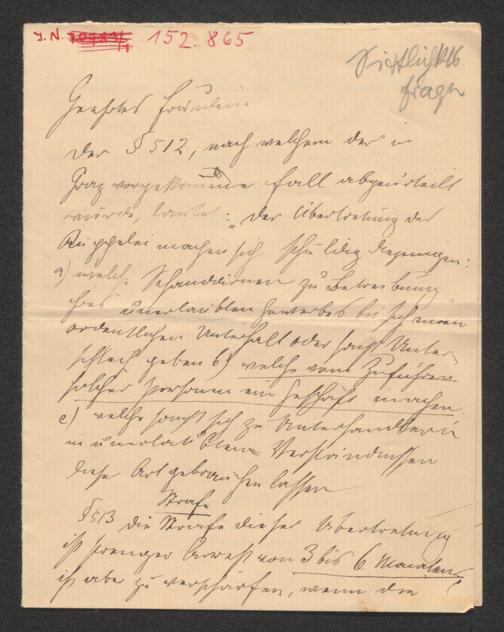 J.N. 152.865
Sittlichkeits
frage
Geehrtes Fräulein
Der § 512, nach welchem der in
Graz vorgekommene Fall abgeurteilt
wurde, lautet: "Der Übertretung der
Kuppelei machen sich schuldig diejenigen:
a) welche Schanddirnen zu Betreibung
ihres unerlaubten Gewerbes bei sich einen
ordentlichen Unterhalt oder sonst Unter
schleif geben b) welche vom Zuführen
solcher Personen ein Geschäft machen.
c) welche sonst sich zu Unterhändlern
in unerlaubten Verständnissen
dieser Art gebrauchen lassen
Strafe
§ 513 die Strafe dieser Übertretung
ist strenger Arrest von 3 bis 6 Monaten,
ist aber zu verschärfen, wenn die